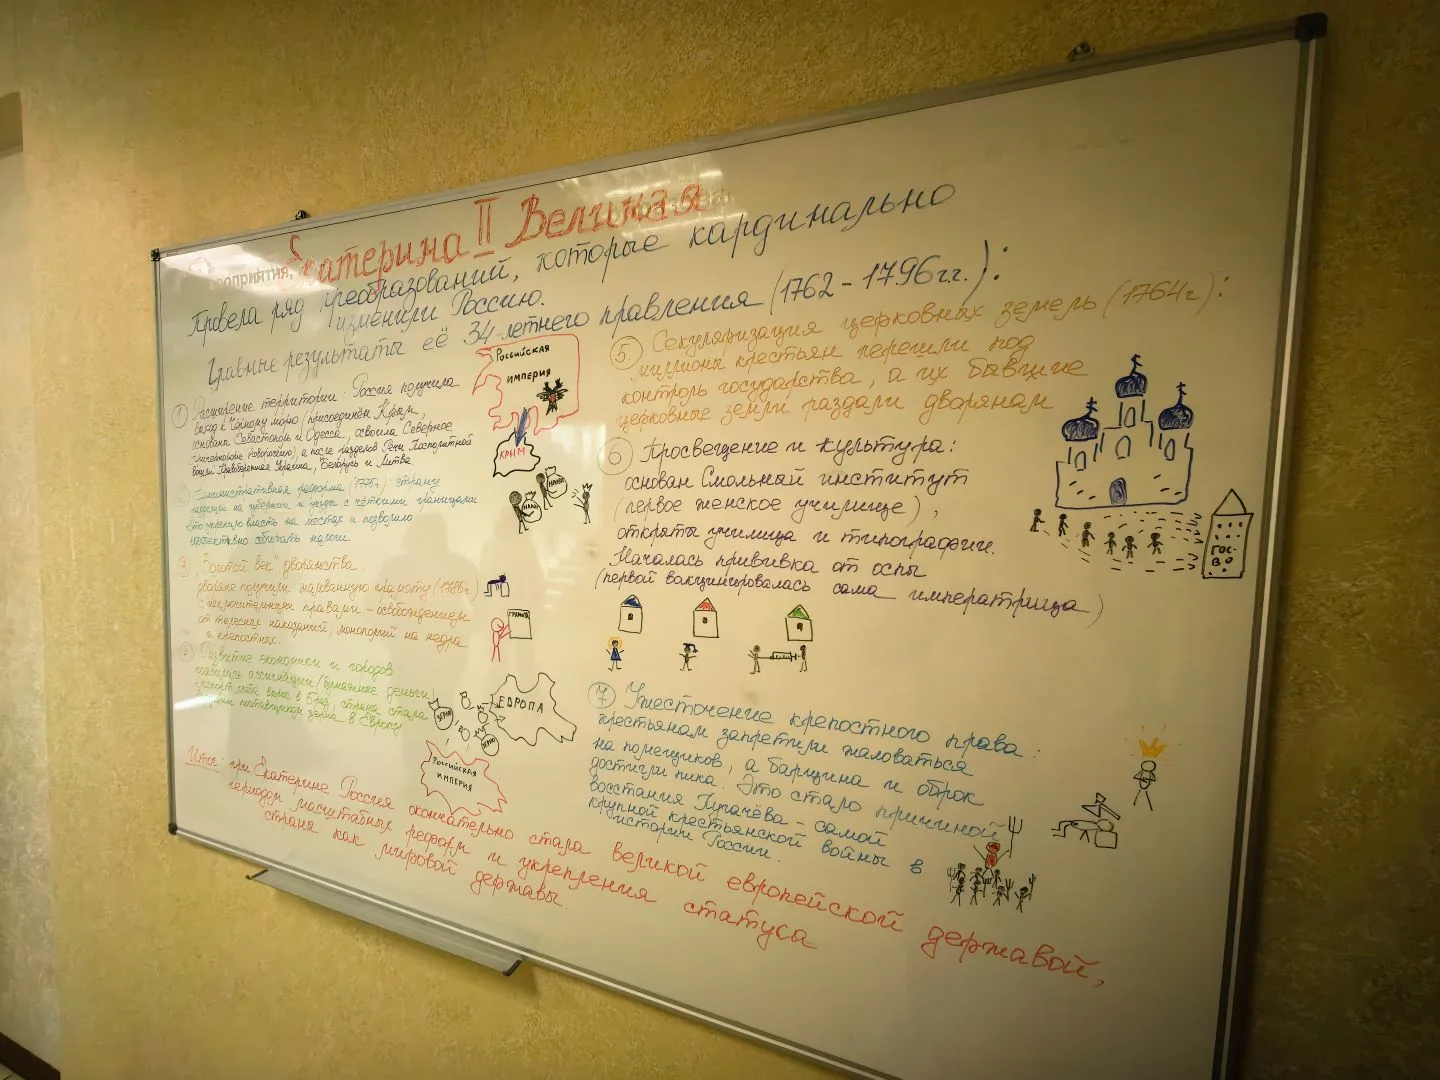 Екатерина II Великая
Провела ряд преобразований, которые кардинально
изменили Россию.
Главные результаты её 34-летнего правления (1762 - 1796 гг.):
① Расширение территории: Россия получила
выход к Чёрному морю (присоединён Крым,
основаны Севастополь и Одесса, освоила Северное
Причерноморье Новороссию), а после разделов Речи Посполитой
вошли Правобережная Украина, Беларусь и Литва.
Российская
империя
КРЫМ
Административная реформа (1775г): страну
на губернии и уезды с чёткими границами
Это укрепило власть на местах и позволило
эффективно собирать налоги.
НАЛОГ
НАЛОГ
"Золотой век" дворянства:
дворяне получили жалованную грамоту (1785г)
с исключительными правами - освобождением
от телесных наказаний, монополией на недра
и крепостных.
ГРАМОТА
Развитие экономики и городов
появились ассигнации (бумажные деньги)
экспорт хлеба вырос в раз, страна стала
поставщиком зерна в Европу
ЕВРОПА
ЗЕРНО
ЗЕРНО
Российская
империя
⑤ Секуляризация церковных земель (1764г):
миллионы крестьян перешли под
контроль государства, а их бывшие
церковные земли раздали дворянам
ГОС-
ВО
⑥ Просвещение и культура:
основан Смольный институт
(первое женское училище),
открыты училища и типографии.
Началась прививка от оспы
(первой вакцинировалась сама императрица)
⑦ Ужесточение крепостного права:
крестьянам запретили жаловаться
на помещиков, а барщина и оброк
достигли пика. Это стало причиной
восстания Пугачёва - самой
крупной крестьянской войны в
истории России.
Итог: при Екатерине Россия окончательно стала великой европейской державой,
периодом масштабных реформ и укрепления статуса
страна как мировой державы.